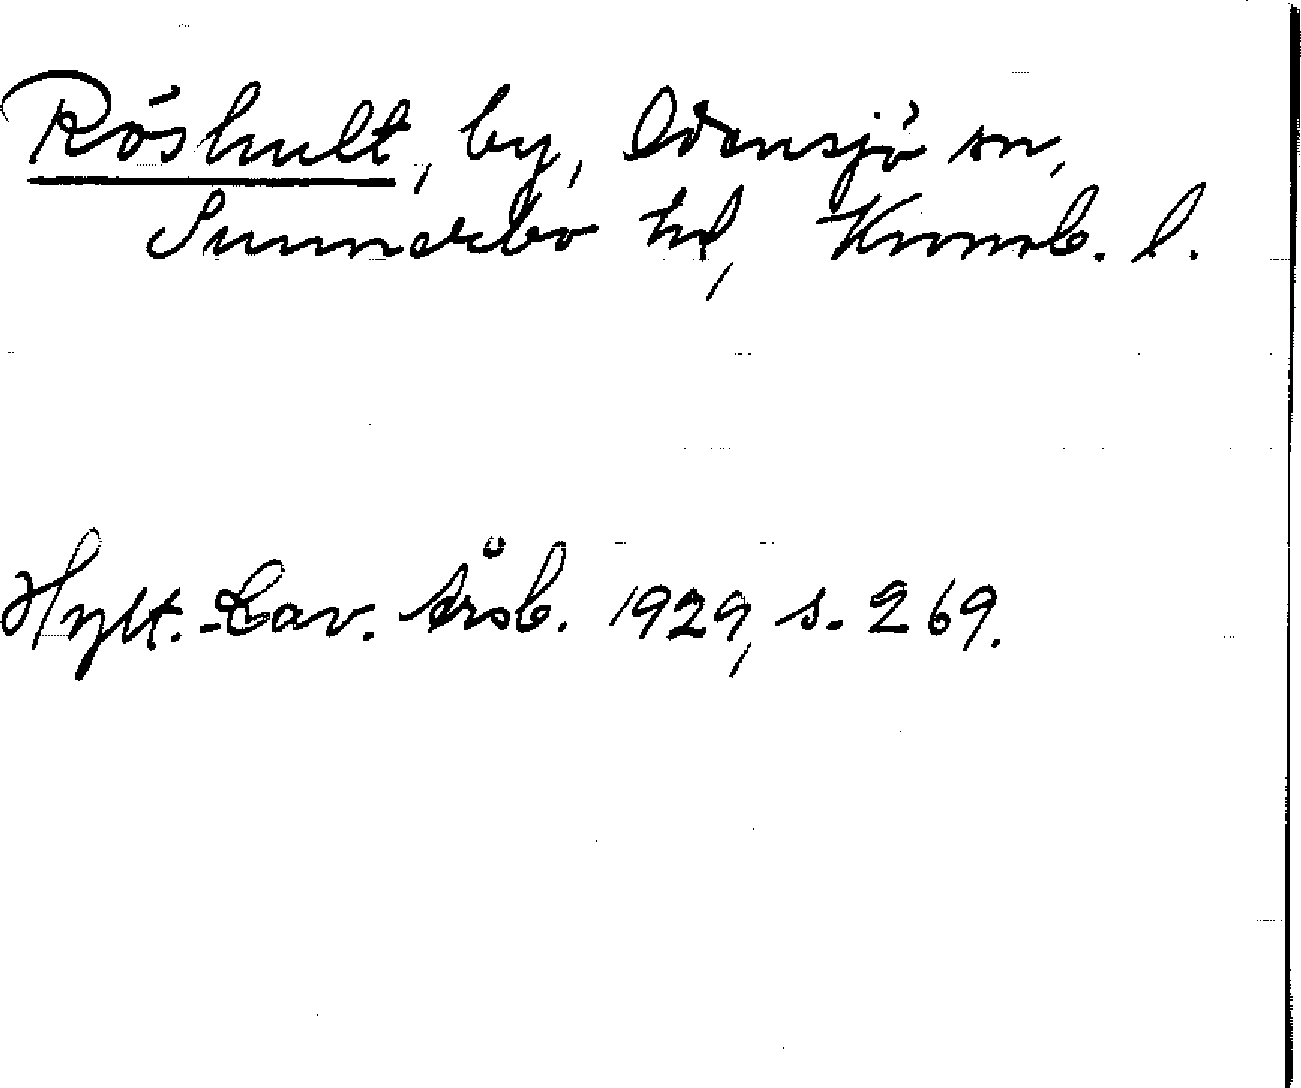 Röshult, by, Odensjö sn,
Sunnerbo hd, Kronob. l.
Hylt.-Cav. Årsb. 1929, s. 269.